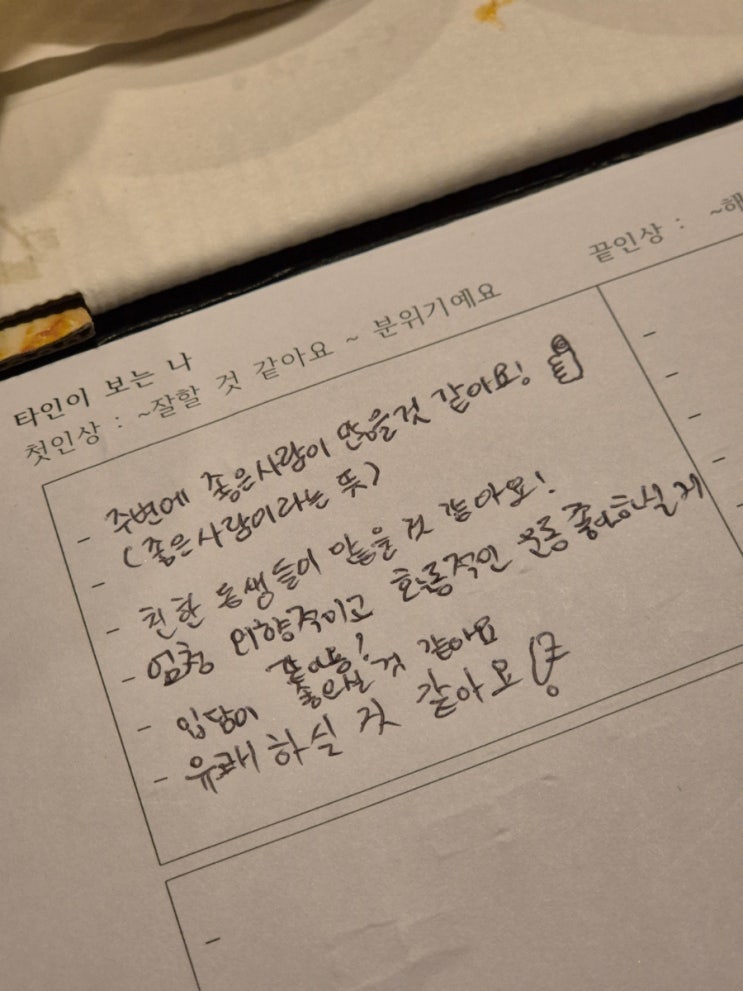 타인이 보는 나
첫인상 : ~잘할 것 같아요 ~ 분위기예요
끝인상 : ~해
- 주변에 좋은사람이 많을것 같아요!
- (좋은사람이라는 뜻)
- 친한 동생들이 많을 것 같아요!
- 엄청 외향적이고 활동적인 운동 좋아하실게
같아용!
- 입담이 좋으실 것 같아요
- 유쾌하실 것 같아요
-
-
-
-
-